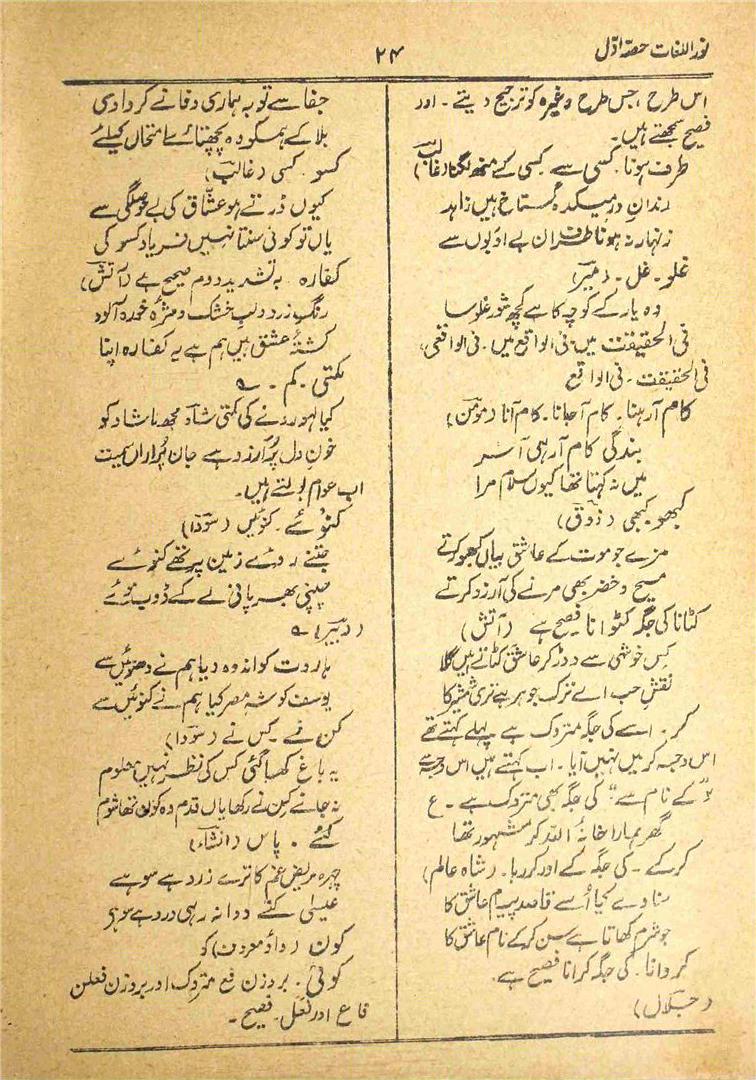 نور اللغات حصہ اوّل
۲۴
اس طرح، جس طرح وغیرہ کو ترجیح دیتے۔ اور
فصیح سمجھتے ہیں۔
طرف ہونا۔ کسی سے کسی کے منھ لگنا (غالب)
رندانِ درِ میکدہ گستاخ ہیں زاہد
زنہار نہ ہونا طرف ان بے ادبوں سے
غلو۔ غل۔ (میر)
وہ یار کے کوچہ کا ہے کچھ شور غلو سا
فی الحقیقت میں۔ فی الواقع میں۔ فی الواقعی،
فی الحقیقت۔ فی الواقع
کام آرہنا۔ کام آجانا۔ کام آنا (مومن)
بندگی کام آرہی آخر
میں نہ کہتا تھا کیوں سلام مرا
کبھو کبھی (ذوق)
مزے جو موت کے عاشق بیاں کبھو کرتے
مسیح و خضر بھی مرنے کی آرزو کرتے
کٹانا کی جگہ کٹوانا فصیح ہے (آتش)
کس خوشی سے دوڑ کر عاشق کٹاتے ہیں گلا
نقشِ حب اے ترک جوہر ہے تری شمشیر کا
کر۔ اسے کی جگہ متروک ہے پہلے کہتے تھے
اس وجہ کر میں نہیں آیا۔ اب کہتے ہیں اس وجہ سے
کے نام سے" کی جگہ بھی متروک ہے۔ ع
گھر ہمارا خانۂ اللہ کر مشہور تھا
کر کے۔ کی جگہ کے اور کر رہا۔ (شاہ عالم)
سنا دے کیا اُسے قاصد پیام عاشق کا
جو شرم کھاتا ہے سن کر کے نام عاشق کا
کروانا۔ کی جگہ کرانا فصیح ہے۔
(جلال)
جفا سے توبہ ہماری وفا نے کروا دی
بلا کے ہمکو وہ پچھتائے امتحاں کیلئے
کسو۔ کسی (غالب)
کیوں ڈرتے ہو عشّاق کی بے حوصلگی سے
یاں تو کوئی سنتا نہیں فریاد کسو کی
کفارہ۔ بہ تشدید دوم صحیح ہے (آتش)
رنگ زرد و لب خشک و مژہ خوں آلود
کشتۂ عشق ہیں ہم ہے یہ کفارہ اپنا
کمتی۔ کم۔ ؎
کیا لہو رونے کی کمتی شاد مجھ ناشاد کو
خونِ دل پُر آرزو ہے جان پُر ارماں سمیت
اب عوام بولتے ہیں۔
کنوئے۔ کنوئیں (سودا)
جتنے روئے زمین پر تھے کنوئے
چپنی بھر پانی لے کے ڈوب موئے
(دبیر) ؎
ہاروت کو اندوہ دیا ہم نے دھوئیں سے
یوسف کو شہِ مصر کیا ہم نے کنوئیں سے
کن نے۔ کس نے (سودا)
یہ باغ کھا گئی کس کی نظر نہیں معلوم
نہ جانے کن نے رکھا یاں قدم وہ کون تھا شوم
کنے۔ پاس (انشاء)
چہرہ مریضِ غم کا ترے زرد ہے سو ہے
عیسیٰ کنے دوا نہ رہی درد ہے سو ہے
کوں (واؤ معروف) کو
کوئی۔ بروزن فع متروک اور بروزن فعلن
فاع اور فَعَل۔ فصیح۔